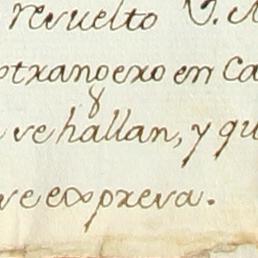 revuelto V. M
otxanoexo en Ca
se hallan, y qu
se expresa.